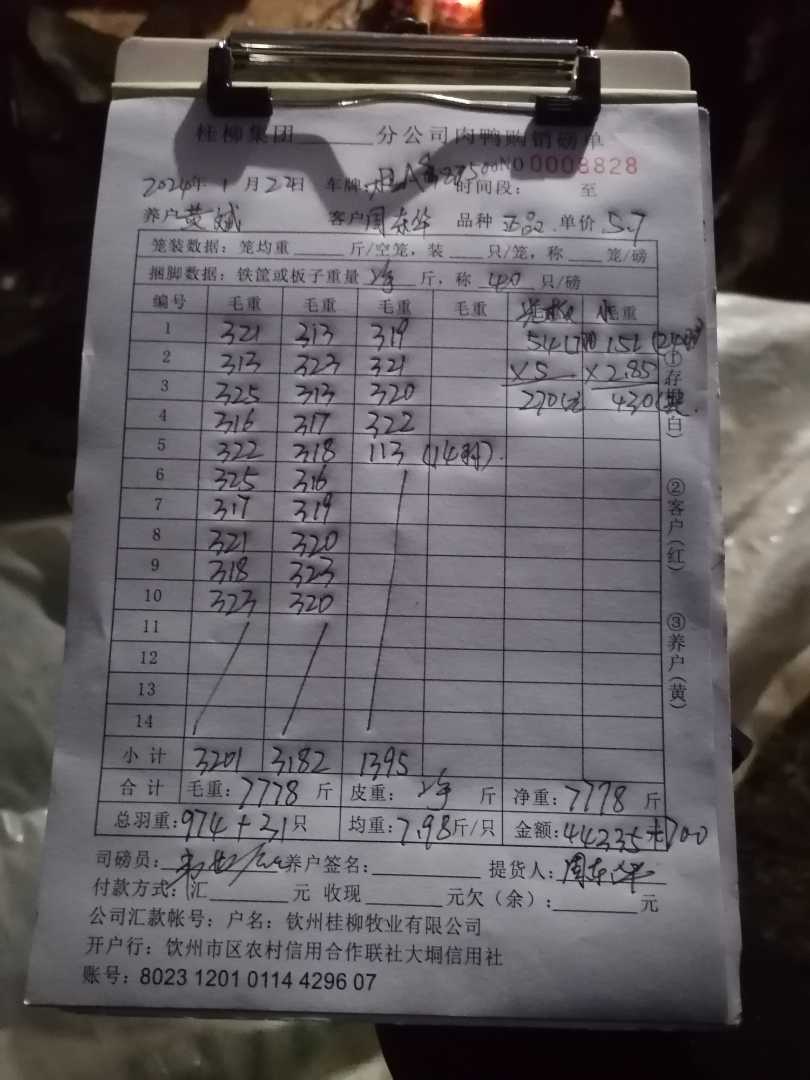 桂柳集团______分公司肉鸭购销磅单
NO 0008828
2024年1月22日 车牌: 时间段: 至
养户 黄斌 客户 周东华 品种 单价 5.7
笼装数据：笼均重____斤/空笼，装____只/笼，称____笼/磅
捆脚数据：铁筐或板子重量 净 斤，称 40 只/磅
编号 毛重 毛重 毛重 毛重 毛重
1 321 313 319 54 151
2 313 323 321 ×5 ×2.85
3 325 313 320 270 430
4 316 317 322
5 322 318 113 (14只).
6 325 316
7 317 319
8 321 320
9 318 323
10 323 320
11
12
13
14
小计 3201 3182 1395
合计 毛重: 7778 斤 皮重: 净 斤 净重: 7778 斤
总羽重: 974+31 只 均重: 7.98 斤/只 金额: 44335 元 700
司磅员: 养户签名: 提货人: 周东华
付款方式: 汇____元 收现____元欠（余）:____元
公司汇款帐号：户名：钦州桂柳牧业有限公司
开户行：钦州市区农村信用合作联社大垌信用社
账号：8023 1201 0114 4296 07
①存根(白)
②客户(红)
③养户(黄)